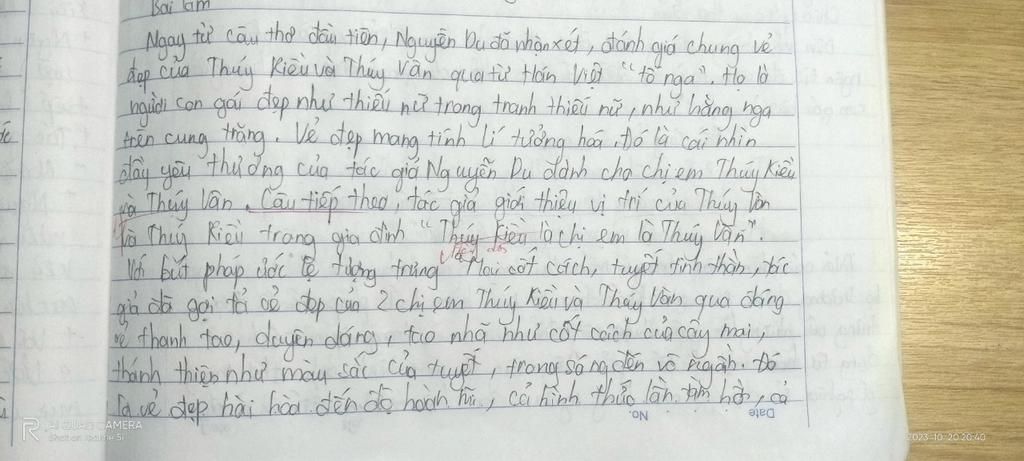 Bài làm
Ngay từ câu thơ đầu tiên, Nguyễn Du đã nhận xét, đánh giá chung vẻ
đẹp của Thúy Kiều và Thúy Vân qua từ Hán Việt "tố nga". Họ là
người con gái đẹp như thiếu nữ trong tranh thiếu nữ, như hằng nga
trên cung trăng. Vẻ đẹp mang tính lí tưởng hoá. Đó là cái nhìn
đầy yêu thương của tác giả Nguyễn Du dành cho chị em Thúy Kiều
và Thúy Vân. Câu tiếp theo, tác giả giới thiệu vị trí của Thúy Vân
và Thúy Kiều trong gia đình "Thúy Kiều là chị em là Thúy Vân".
Với bút pháp ước lệ tượng trưng "Mai cốt cách, tuyết tinh thần, tác
giả đã gợi tả vẻ đẹp của 2 chị em Thúy Kiều và Thúy Vân qua dáng
vẻ thanh tao, duyên dáng, tao nhã như cốt cách của cây mai,
thánh thiện như màu sắc của tuyết, trong sáng đến vô ngàn. Đó
là vẻ đẹp hài hòa đến độ hoàn mĩ, cả hình thức lẫn tâm hồn, cả
No.
Date
AI QUAD CAMERA
2023-10-20 20:40